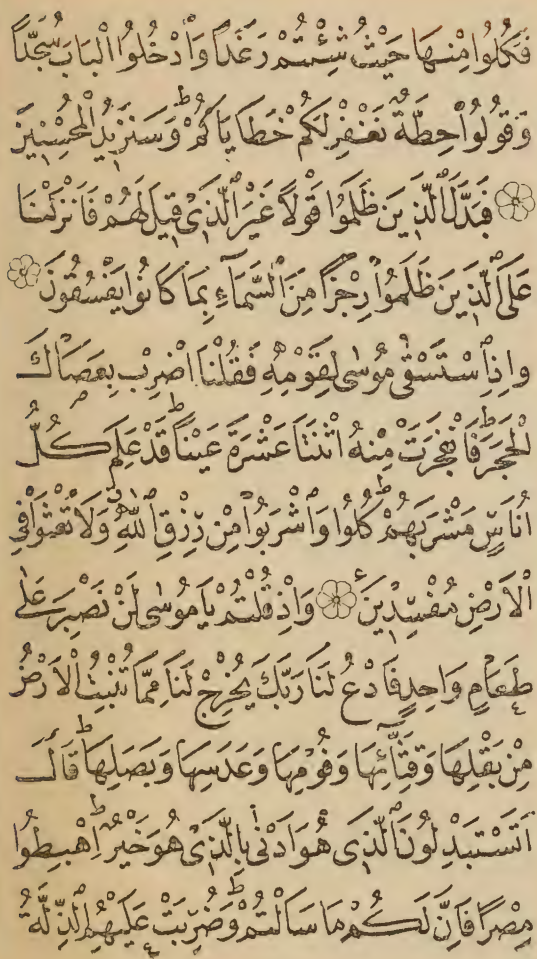 فَكُلُوا مِنْهَا حَيْثُ شِئْتُمْ رَغَدًا وَٱدْخُلُوا ٱلْبَابَ سُجَّدًا
وَقُولُوا حِطَّةٌ نَغْفِرْ لَكُمْ خَطَايَاكُمْ ۗ وَسَنَزِيدُ ٱلْمُحْسِنِينَ
۝ فَبَدَّلَ ٱلَّذِينَ ظَلَمُوا قَوْلًا غَيْرَ ٱلَّذِي قِيلَ لَهُمْ فَأَنْزَلْنَا
عَلَى ٱلَّذِينَ ظَلَمُوا رِجْزًا مِنَ ٱلسَّمَآءِ بِمَا كَانُوا يَفْسُقُونَ ۝
وَاِذِ ٱسْتَسْقٰى مُوسٰى لِقَوْمِهِ فَقُلْنَا ٱضْرِبْ بِعَصَاكَ
ٱلْحَجَرَ ۗ فَٱنْفَجَرَتْ مِنْهُ ٱثْنَتَا عَشْرَةَ عَيْنًا ۗ قَدْ عَلِمَ كُلُّ
اُنَاسٍ مَشْرَبَهُمْ ۗ كُلُوا وَٱشْرَبُوا مِنْ رِزْقِ ٱللّٰهِ وَلَا تَعْثَوْا فِي
ٱلْاَرْضِ مُفْسِدِينَ ۝ وَاِذْ قُلْتُمْ يَامُوسٰى لَنْ نَصْبِرَ عَلٰى
طَعَامٍ وَاحِدٍ فَٱدْعُ لَنَا رَبَّكَ يُخْرِجْ لَنَا مِمَّا تُنْبِتُ ٱلْاَرْضُ
مِنْ بَقْلِهَا وَقِثَّآئِهَا وَفُومِهَا وَعَدَسِهَا وَبَصَلِهَا ۗ قَالَ
اَتَسْتَبْدِلُونَ ٱلَّذِي هُوَ اَدْنٰى بِٱلَّذِي هُوَ خَيْرٌ ۗ اِهْبِطُوا
مِصْرًا فَاِنَّ لَكُمْ مَا سَاَلْتُمْ ۗ وَضُرِبَتْ عَلَيْهِمُ ٱلذِّلَّةُ